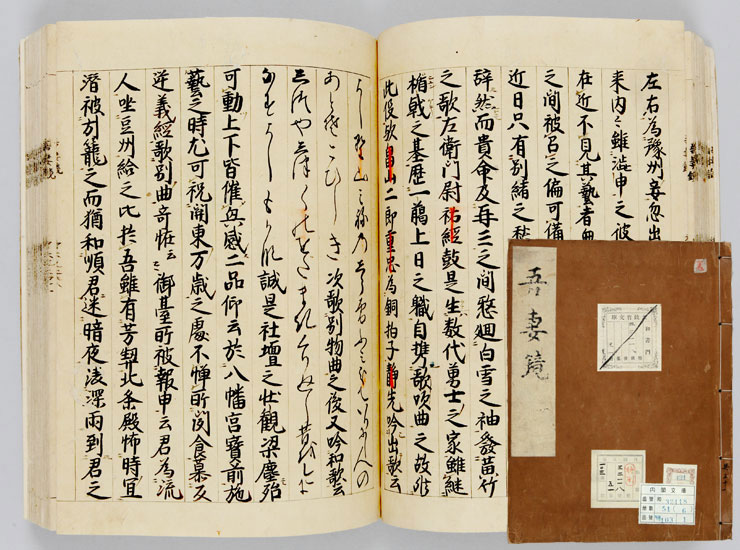 左右為豫州妾忽出
来内々雖澁申之彼
在近不見其藝者無
之間被召之偏可備
近日只有別緒之愁
辞然而貴命及再三之間憖廻白雪之袖發黄竹
之歌左衛門尉祐経鼓是生数代勇士之家雖継
楯戟之基歴一臈上日之職自携歌吹曲之故也
此役歟畠山二郎重忠為銅拍子静先吟出歌云
よし野山みねのしら雪ふみわけていりにし人の
あとそこひしき 次歌別物曲之後又吟和歌云
しつやしつしつのをたまきくり返し昔を今に
なすよしもかな 誠是社壇之壮觀梁塵殆
可動上下皆催興感二品仰云於八幡宮寳前施
藝之時尤可祝関東万歳之處不憚所聞食慕反
逆義經歌別曲奇恠云々御臺所被報申云君為流
人坐豆州給之比於吾雖有芳契北条殿怖時冝
潜被引籠之而猶和順君迷暗夜凌深雨到君之
吾妻鏡
内閣文庫
32118